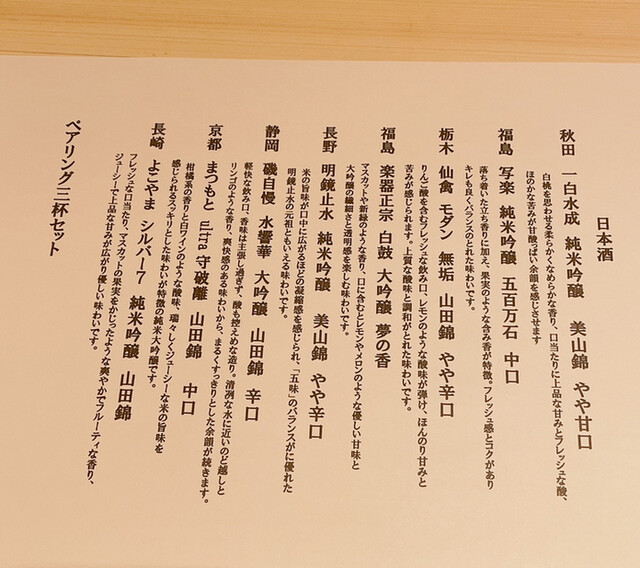 日本酒
秋田 一白水成 純米吟醸 美山錦 やや甘口
白桃を思わせる柔らかくなめらかな香り、口当たりに上品な甘みとフレッシュな酸、
ほのかな苦みが甘酸っぱい余韻を感じさせます
福島 写楽 純米吟醸 五百万石 中口
落ち着いた立ち香りに加え、果実のような含み香が特徴。フレッシュ感とコクがあり
キレも良くバランスのとれた味わいです。
栃木 仙禽 モダン 無垢 山田錦 やや辛口
りんご酸を含むフレッシュな飲み口、レモンのような酸味が弾け、ほんのり甘みと
苦みが感じられます。上質な酸味と調和がとれた味わいです。
福島 楽器正宗 白鼓 大吟醸 夢の香
マスカットや新緑のような香り、口に含むとレモンやメロンのような優しい甘味と
大吟醸の繊細さと透明感を楽しむ味わいです。
長野 明鏡止水 純米吟醸 美山錦 やや辛口
米の旨味が口中に広がるほどの凝縮感を感じられ、「五味」のバランスがに優れた
明鏡止水の元祖ともいえる味わいです。
静岡 磯自慢 水響華 大吟醸 山田錦 辛口
軽快な飲み口、香味は主張し過ぎず、酸も控えめな造り。清冽な水に近いのど越しと
リンゴのような香り、爽快感のある味わいから、まるくすっきりとした余韻が続きます。
京都 まつもと ultra 守破離 山田錦 中口
柑橘系の香りと白ワインのような酸味、瑞々しくジューシーな米の旨味を
感じられるスッキリとした味わいが特徴の純米大吟醸です。
長崎 よこやま シルバー7 純米吟醸 山田錦
フレッシュな口当たり、マスカットの果実をかじったような爽やかでフルーティな香り、
ジューシーで上品な甘みが広がり優しい味わいです。
ペアリング三杯セット